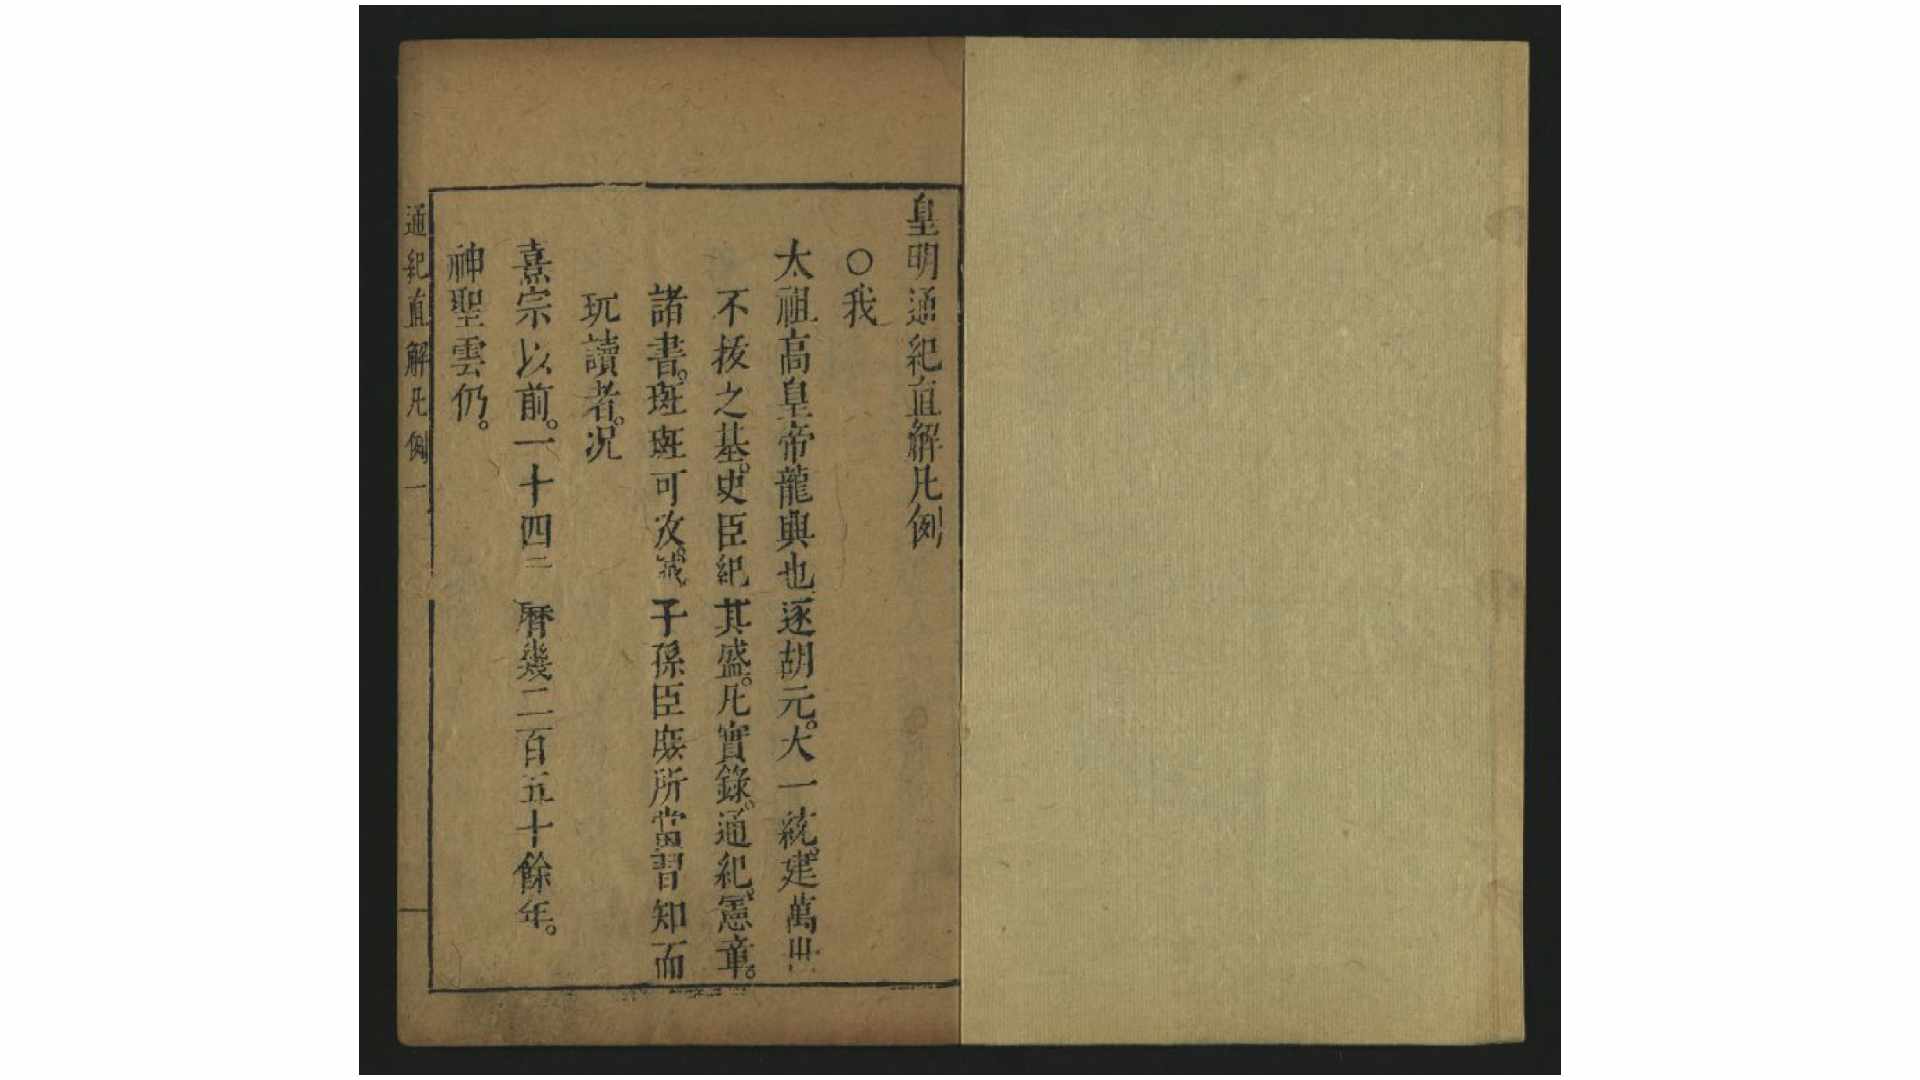 皇明通紀直解凡例
○我
太祖高皇帝龍興也逐胡元。大一統。建萬世
不拔之基。史臣紀其盛。凡實錄。通紀。憲章。
諸書。斑斑可攷。誠子孫臣庶所當習知而
玩讀者。況
熹宗以前。一十四 曆幾二百五十餘年。
神聖雲仍。
通紀直解凡例 一